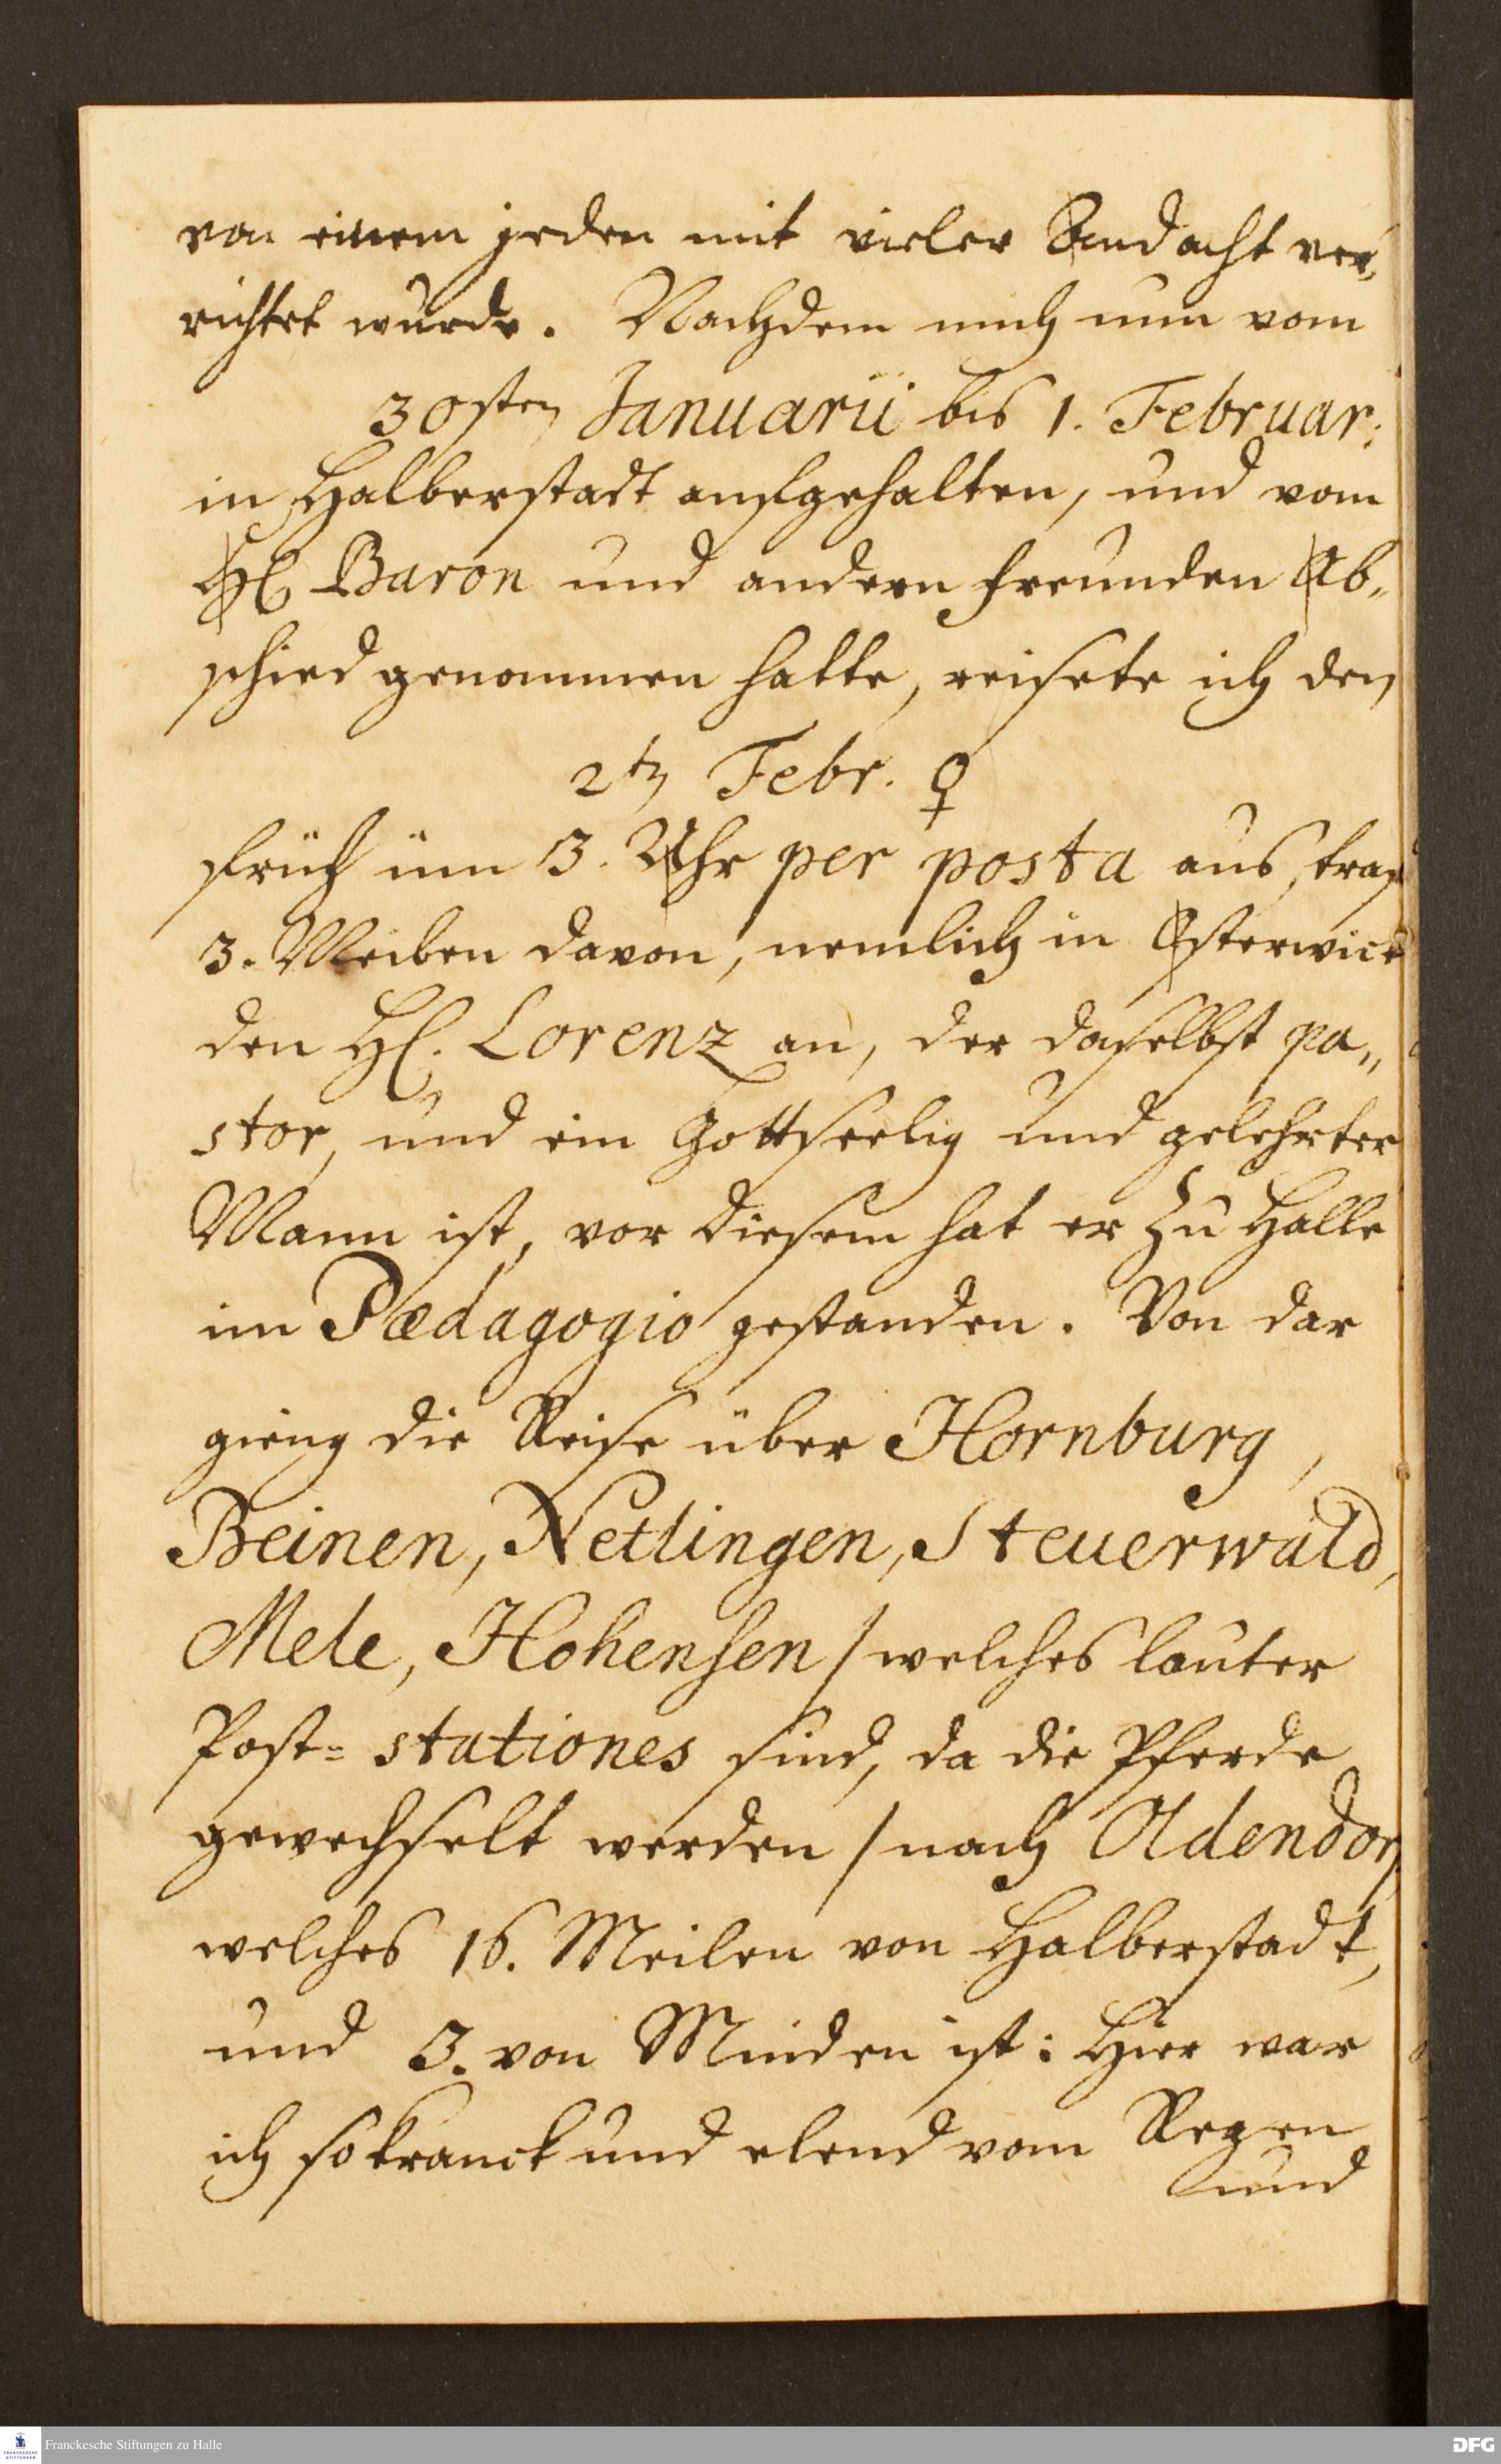 von einem jeden mit vieler Andacht ver„
richtet wurde. Nachdem mich nun vom
30sten Januarii bis 1. Februar:
in Halberstadt aufgehalten, und vom
H. Baron und andern freunden Ab„
schied genommen hatte, reisete ich den
2ten Febr. ♀
früh üm 3. Uhr per posta aus, traf
3. Meilen davon, nemlich in Osterwick
den H. Lorenz an, der daselbst pa„
stor, und ein Gottseelig und gelehrter
Mann ist, vor diesem hat er zu Halle
im Pædagogio gestanden. Von dar
gieng die Reise über Hornburg,
Beinen, Netlingen, Steuerwald,
Mele, Hohensen / welches lauter
Post= stationes sind, da die Pferde
gewechselt werden / nach Oldendorf
welches 16. Meilen von Halberstadt,
und 3. von Minden ist: Hier war
ich so kranck und elend vom Regen
und
Franckesche Stiftungen zu Halle
DFG